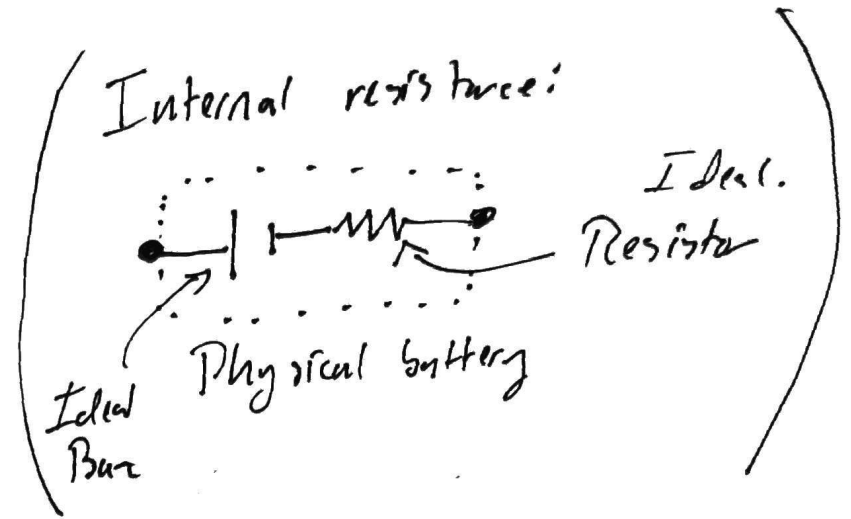 Internal resistance:
Ideal.
Resistor
Physical battery
Ideal